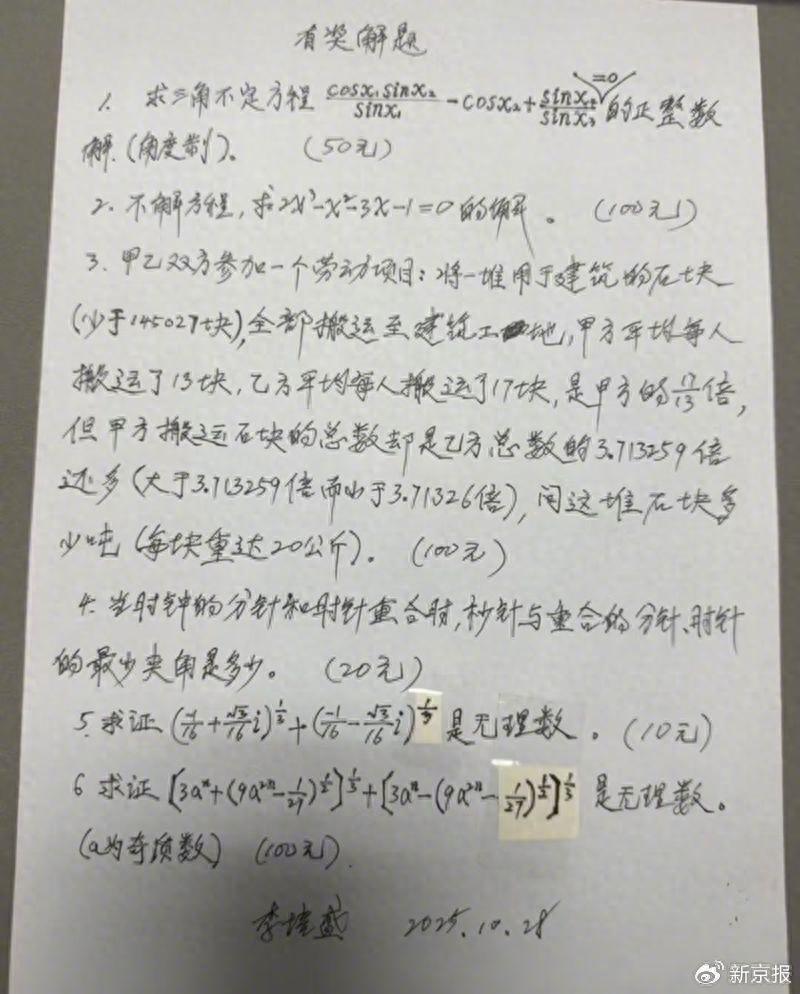 有奖解题
1. 求三角不定方程 cosx₁sinx₂/sinx₁ - cosx₂ + sinx₂/sinx₃ =0 的正整数
解.(角度制)。 (50元)
2. 不解方程,求2x³-x²-3x-1=0的解。 (100元)
3. 甲乙双方参加一个劳动项目:将一堆用于建筑的石块
(少于145027块),全部搬运至建筑工地,甲方平均每人
搬运了13块,乙方平均每人搬运了17块,是甲方的17/13倍,
但甲方搬运石块的总数却是乙方总数的3.713259倍
还多(大于3.713259倍而小于3.71326倍),问这堆石块多
少吨(每块重达20公斤)。 (100元)
4. 当时钟的分针和时针重合时,秒针与重合的分针、时针
的最少夹角是多少。 (20元)
5. 求证 (-1/16+√3/16 i)^(1/3)+(-1/16-√3/16 i)^(1/3) 是无理数。(10元)
6 求证 [3aⁿ+(9a²ⁿ-1/27)^(1/2)]^(1/3)+[3aⁿ-(9a²ⁿ-1/27)^(1/2)]^(1/3) 是无理数。
(a为奇质数) (100元)
李 2025.10.28
新京报